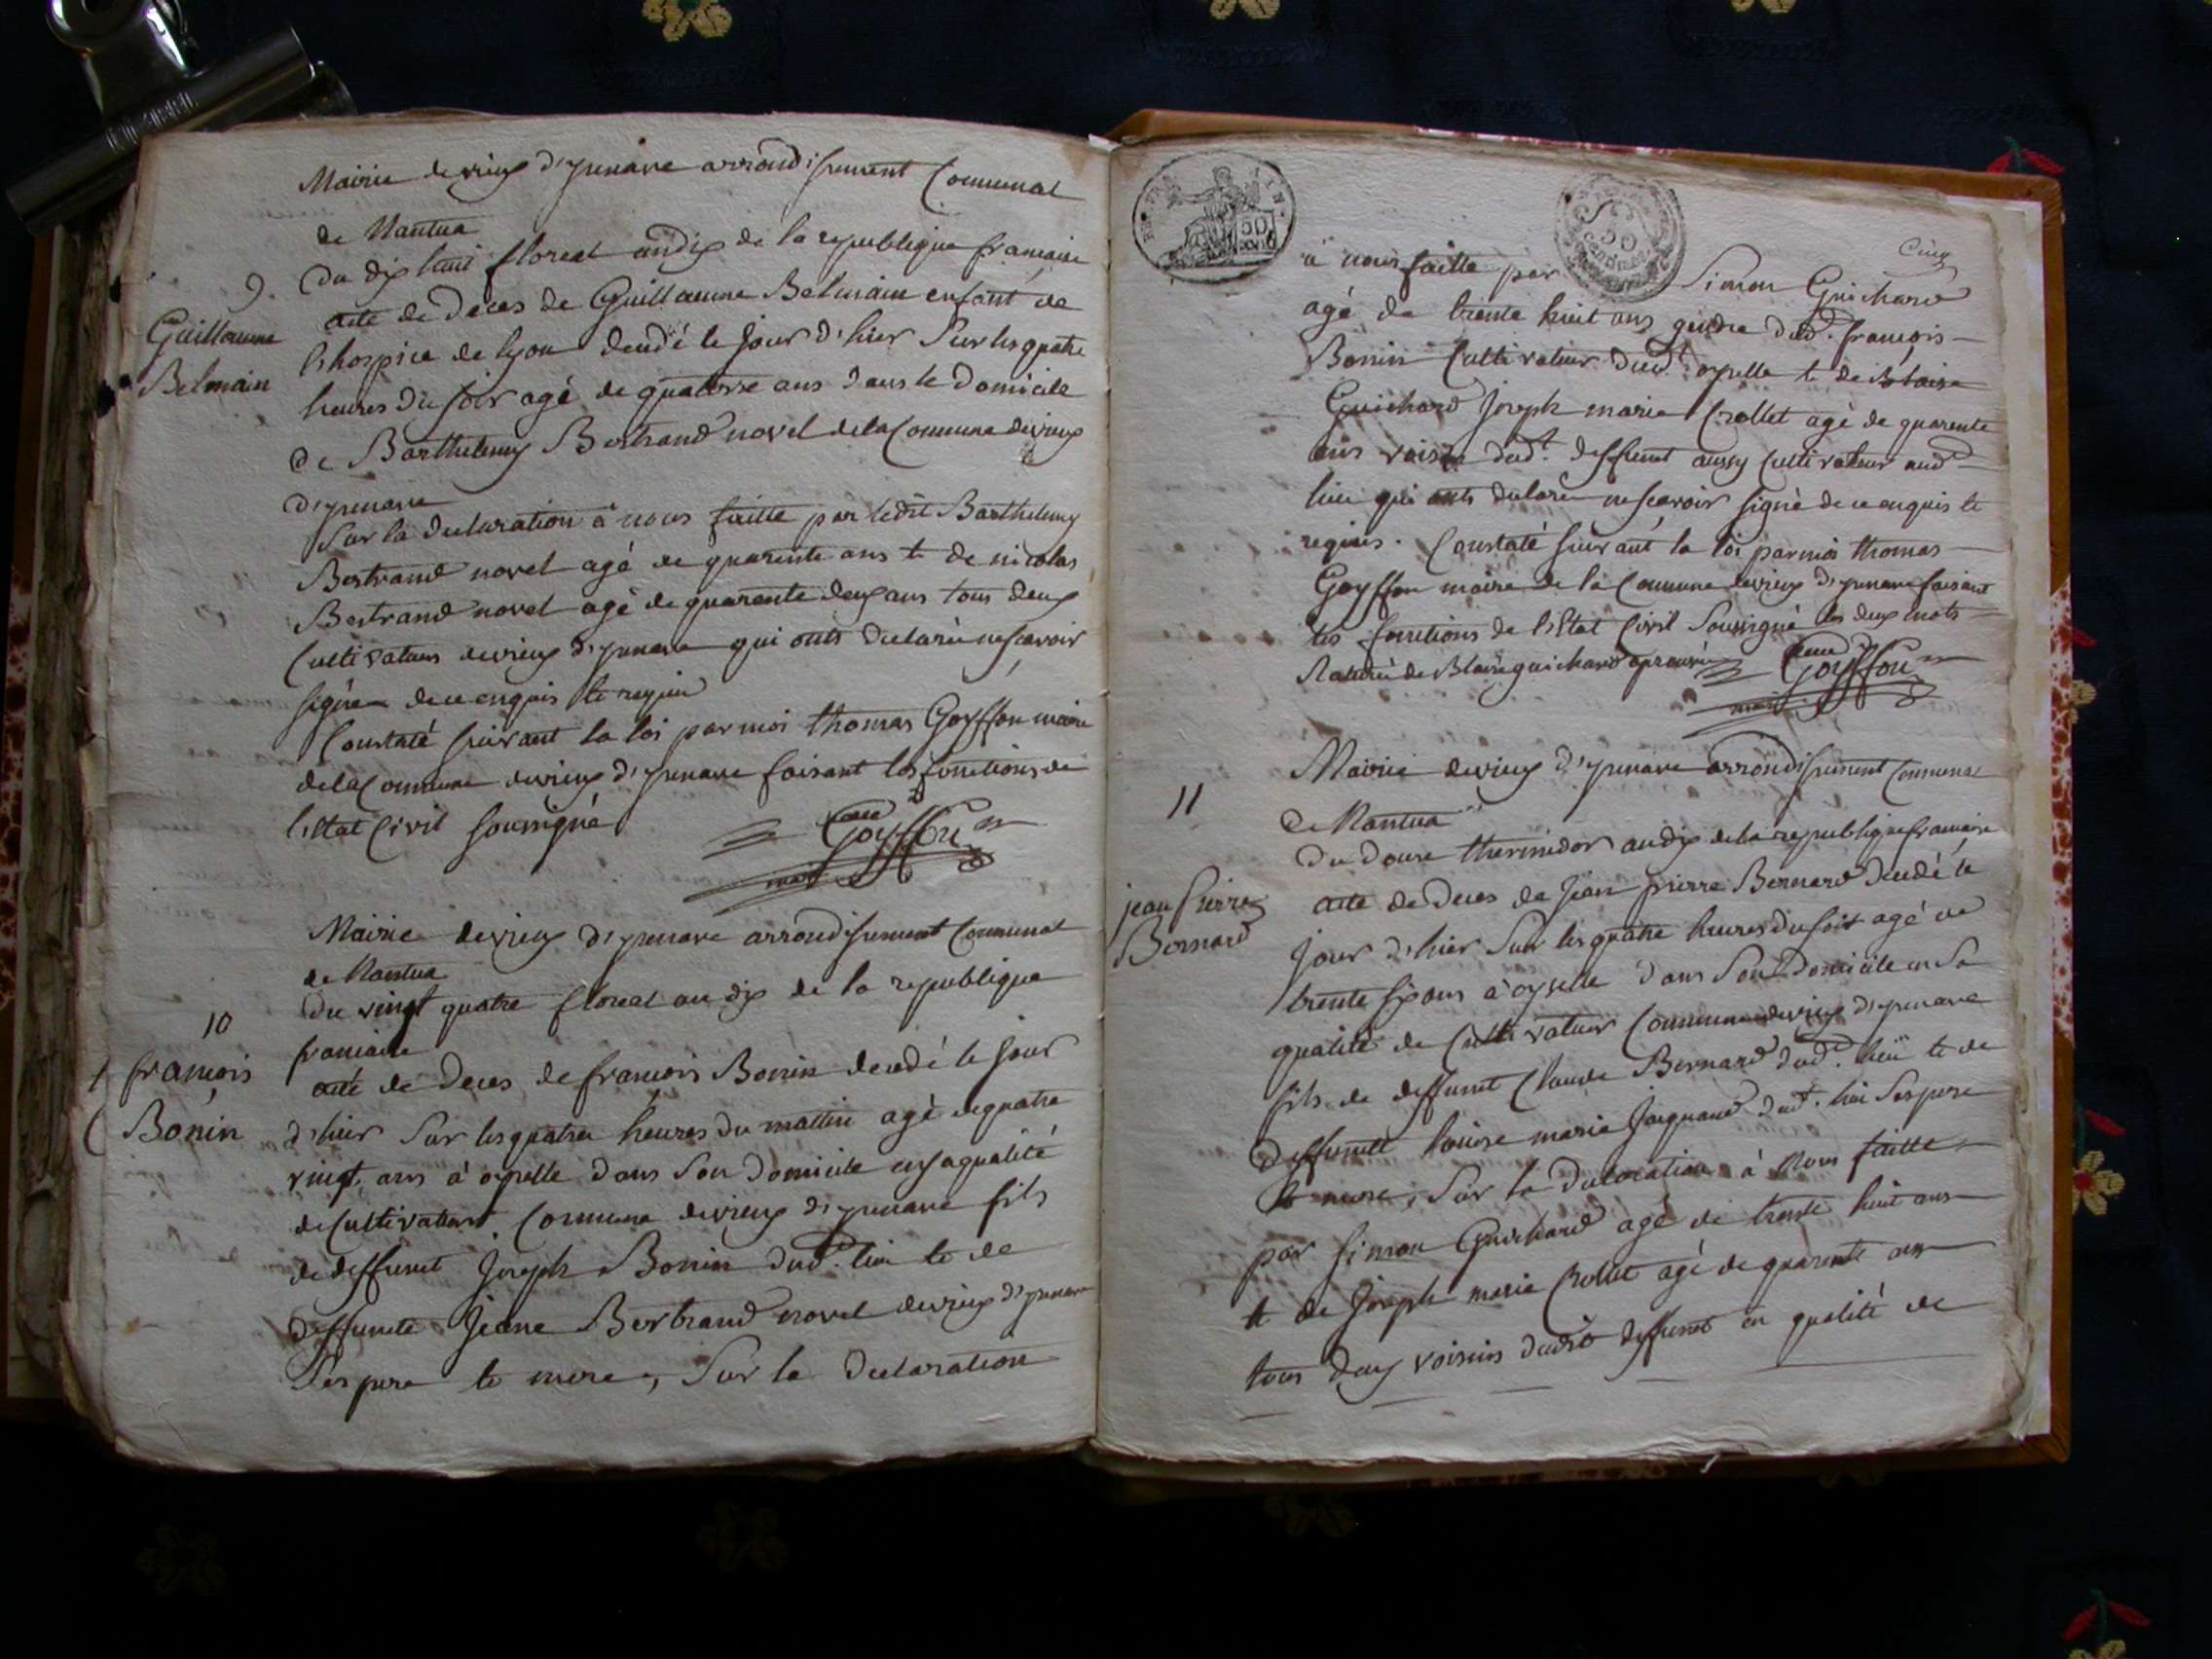 Mairie devieux d'yzenave arrondissement Communal
de Nantua
9.
Du dix huit floreal an dix de la republique francaise
Guillaume
Belmain
acte de deces de Guillaume Belmain enfant de
l'hospice de lyon decedé le jour d'hier Sur les quatre
heures du soir agé de quatorze ans dans le domicile
de Barthelemy Bertrand novel dela Commune devieux
d'yzenave
Sur la declaration à nous faitte par ledit Barthelemy
Bertrand novel agé de quarente ans et de nicolas
Bertrand novel agé de quarente deux ans tous deux
Cultivateurs devieux d'yzenave qui onts declaré ne scavoir
signé de ce enquis et requis
Constaté suivant la loi par moi thomas Goyffon maire
dela Commune devieux d'yzenave faisant les fonctions de
l'Etat Civil soussigné
Goyffon
maire
Mairie devieux d'yzenave arrondissement Communal
de Nantua
10
Du vingt quatre floreal an dix de la republique
francaise
francois
Bonin
acte de deces de francois Bonin decedé le jour
d'hier Sur les quatre heures du mattin agé de quatre
vingt ans à oyselle dans Son domicile en sa qualité
de Cultivateur Commune devieux d'yzenave fils
de deffunt Joseph Bonin dud. lieu et de
deffunte Jeane Bertrand novel devieux d'yzenave
Ses pere et mere, Sur la declaration
REP. FRA
50
Cinq
à nous faitte par Simon Guichard
agé de trente huit ans gendre dud. francois
Bonin Cultivateur dud. oyselle et de Blaise
Guichard Joseph marie Crollet agé de quarente
ans voisin dud. deffunt aussy Cultivateur aud.
lieu qui onts declaré ne scavoir signé de ce enquis et
requis. Constaté suivant la loi par moi thomas
Goyffon maire de la Commune devieux d'yzenave faisant
les fonctions de l'Etat Civil Soussigné les deux mots
Raturé de Blaise guichard aprouvé
Goyffon
maire
Mairie devieux d'yzenave arrondissement Communal
11
de Nantua
Du douze thermidor an dix de la republique francaise
jean Pierre
Bernard
acte de deces de Jean pierre Bernard decedé le
jour d'hier Sur les quatre heures du soir agé de
trente six ans à oyselle dans Son domicile en Sa
qualité de Cultivateur Commune devieux d'yzenave
fils de deffunt Claude Bernard dud. lieu et de
deffunte louise marie dud. lieu Ses pere
et mere, Sur la declaration à Nous faitte
par Simon Guichard agé de trente huit ans
et de Joseph marie Crollet agé de quarente ans
tous deux voisins dudit deffunt en qualité de